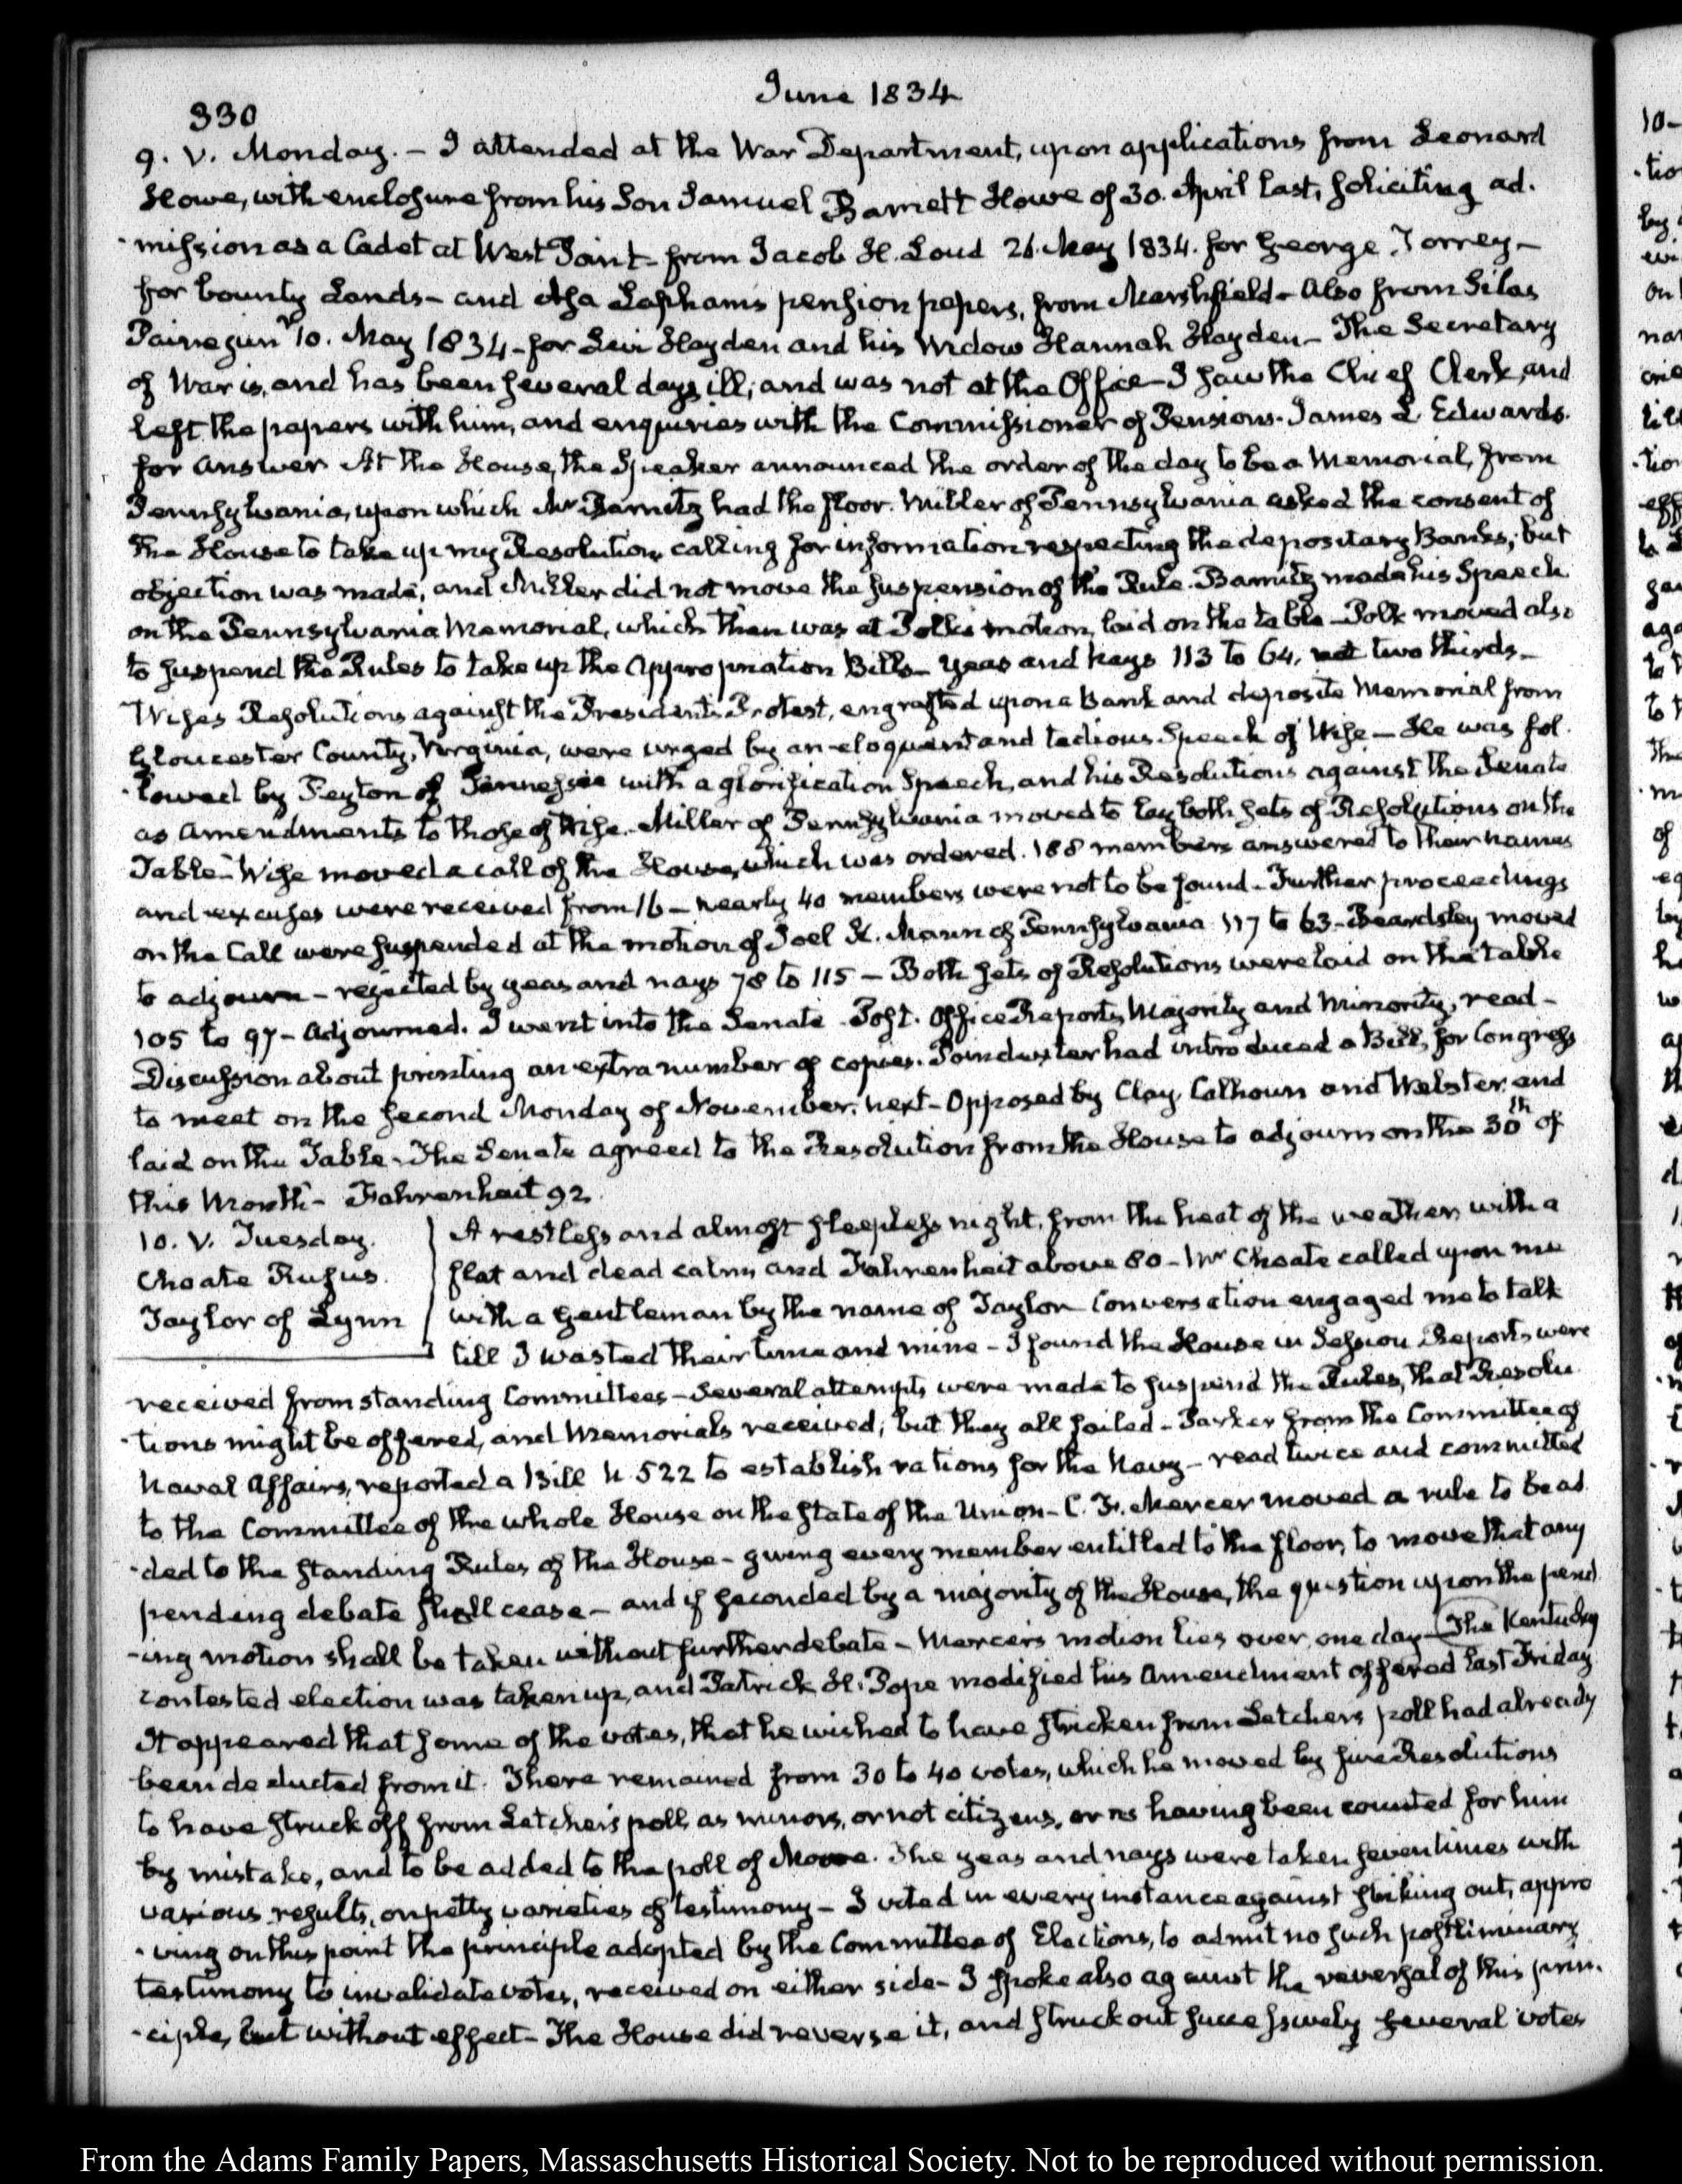 June 1834
330
9. V. Monday. – I attended at the War Department, upon applications from Leonard
Howe, with enclosure from his Son Samuel Barrett Howe of 30. April last, soliciting ad.
-mission as a Cadet at West Point – from Jacob H. Loud 26. May 1834. for George Torrey –
for bounty Lands – and Asa Lapham's pension papers, from Marshfield – Also from Silas
Paine junr 10. May 1834 – for Levi Hayden and his Widow Hannah Hayden – The Secretary
of War is, and has been several days ill, and was not at the Office – I saw the Chief Clerk, and
left the papers with him, and enquiries with the Commissioner of Pensions. James L Edwards.
for answer At the House, the Speaker announced the order of the day to be a Memorial, from
Pennsylvania, upon which Mr Barnitz had the floor. Miller of Pennsylvania asked the consent of
the House to take up my Resolution, calling for information respecting the depositary Banks; but
objection was made, and Miller did not move the suspension of the Rule. Barnitz made his Speech
on the Pennsylvania Memorial, which then was at Polk's motion, laid on the table – Polk moved also
to suspend the Rules to take up the Appropriation Bills – Yeas and Nays 113 to 64, not two thirds –
Wise's Resolutions against the President's Protest, engrafted upon a Bank and deposite Memorial from
Gloucester County, Virginia, were urged by an eloquent and tedious Speech of Wise – He was fol.
-lowed by Peyton of Tennessee with a glorification Speech, and his Resolutions against the Senate
as amendments to those of Wise. Miller of Pennsylvania moved to lay both sets of Resolutions on the
Table – Wise moved a call of the House, which was ordered. 188 members answered to their names
and excuses were received from 16 – nearly 40 members were not to be found – Further proceedings
on the Call were suspended at the motion of Joel K. Mann of Pennsylvania 117 to 63 – Beardsley moved
to adjourn – rejected by yeas and nays 78 to 115 – Both sets of Resolutions were laid on the table
105 to 97 – Adjourned. I went into the Senate – Post. Office Reports, Majority and Minority, read –
Discussion about printing an extra number of copies. Poindexter had introduced a Bill, for Congress
to meet on the second Monday of November. next – Opposed by Clay, Calhoun and Webster, and
laid on the Table – The Senate agreed to the Resolution from the House to adjourn on the 30th of
this Month – Fahrenheit 92.
10. V. Tuesday.
Choate Rufus.
Taylor of Lynn
A restless and almost sleepless night, from the heat of the weather, with a
flat and dead calm, and Fahrenheit above 80 – Mr Choate called upon me
with a Gentleman by the name of Taylor Conversation engaged me to talk
till I wasted their time and mine – I found the House in Session Reports were
received from standing Committees – Several attempts were made to suspend the Rules, that Resolu
-tions might be offered, and Memorials received; but they all failed – Parker from the Committee of
Naval Affairs, reported a Bill N. 522 to establish rations for the Navy – read twice and committed
to the Committee of the whole House on the state of the Union – C. F. Mercer moved a rule to be ad
-ded to the standing Rules of the House – giving every member entitled to the floor, to move that any
pending debate shall cease – and if seconded by a majority of the House, the question upon the pend
-ing motion shall be taken without further debate – Mercer's motion lies over one day – The Kentucky
contested election was taken up, and Patrick H. Pope modified his Amendment offered last Friday
It appeared that some of the votes, that he wished to have stricken from Letchers poll had already
been deducted from it. There remained from 30 to 40 votes, which he moved by five Resolutions
to have struck off from Letcher's poll, as minors, or not citizens, or as having been counted for him
by mistake, and to be added to the poll of Moore. The yeas and nays were taken seven times with
various results, on petty varieties of testimony – I voted in every instance against striking out, appro
-ving on this point the principle adopted by the Committee of Elections, to admit no such postliminary
testimony to invalidate votes, received on either side – I spoke also against the reversal of this prin.
-ciple, but without effect – The House did reverse it, and struck out successively several votes
From the Adams Family Papers, Massachusetts Historical Society. Not to be reproduced without permission.